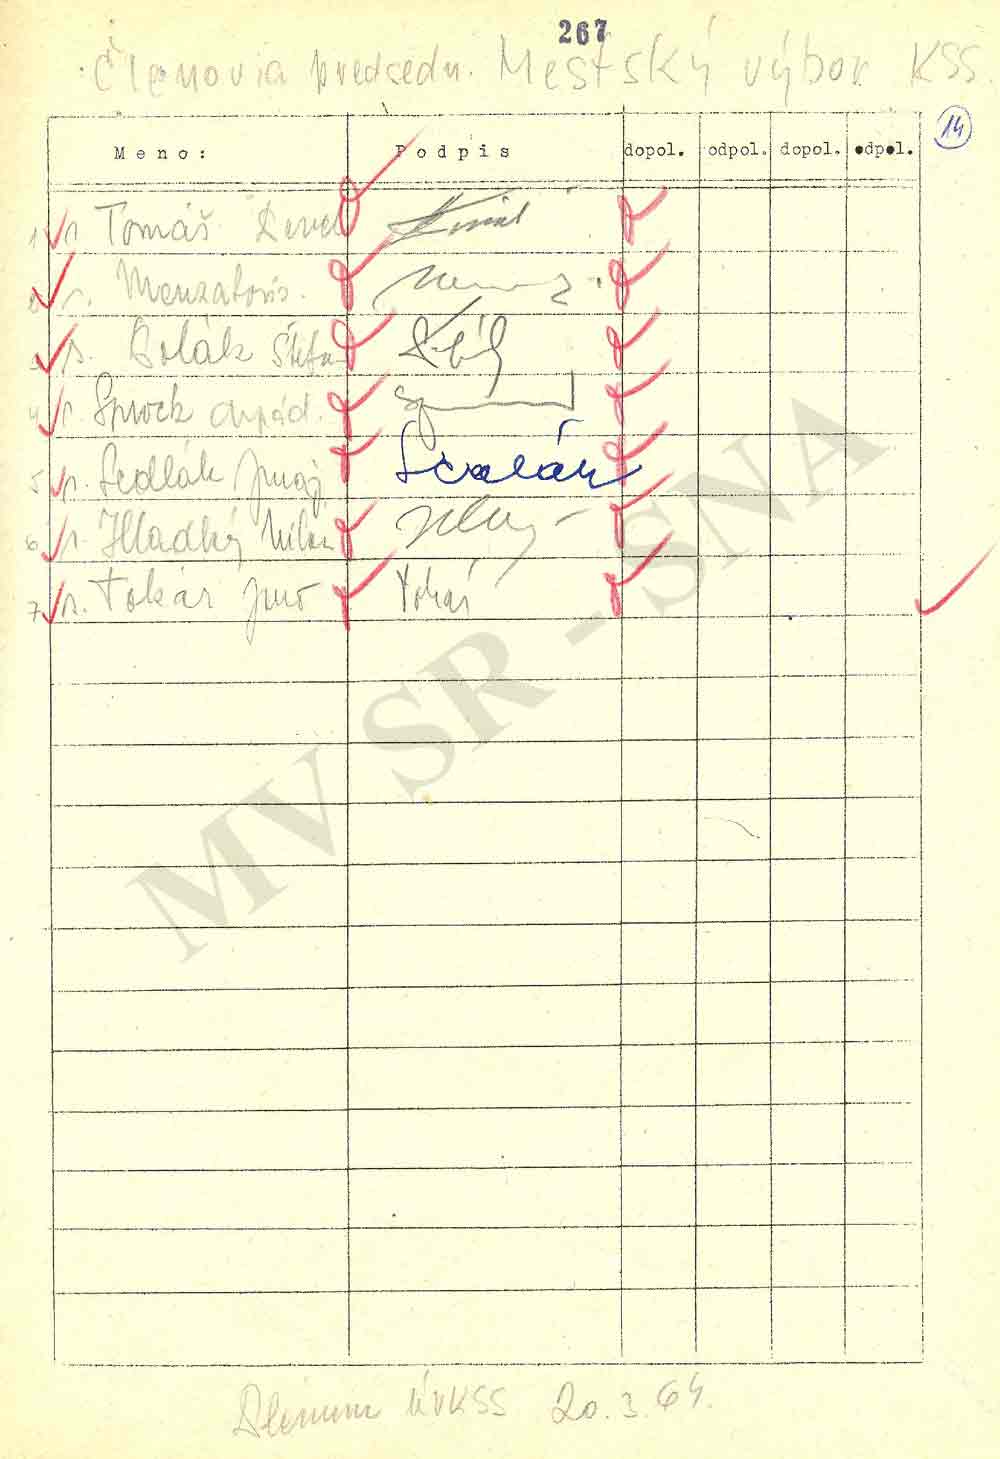 267
Členovia predsedn. Mestský výbor KSS.
14
Meno: Podpis dopol. odpol. dopol. odpol.
1 s. Tomáš
2 s. Menzatoris.
3 s. Štefan
4 s. Sprock Arpád.
5 s. Sedlák Juraj Sedlák
6 s. Hladký Milan
7 s. Tokár Juro Tokár
MV SR - SNA
Plénum ÚVKSS 20.3.64.